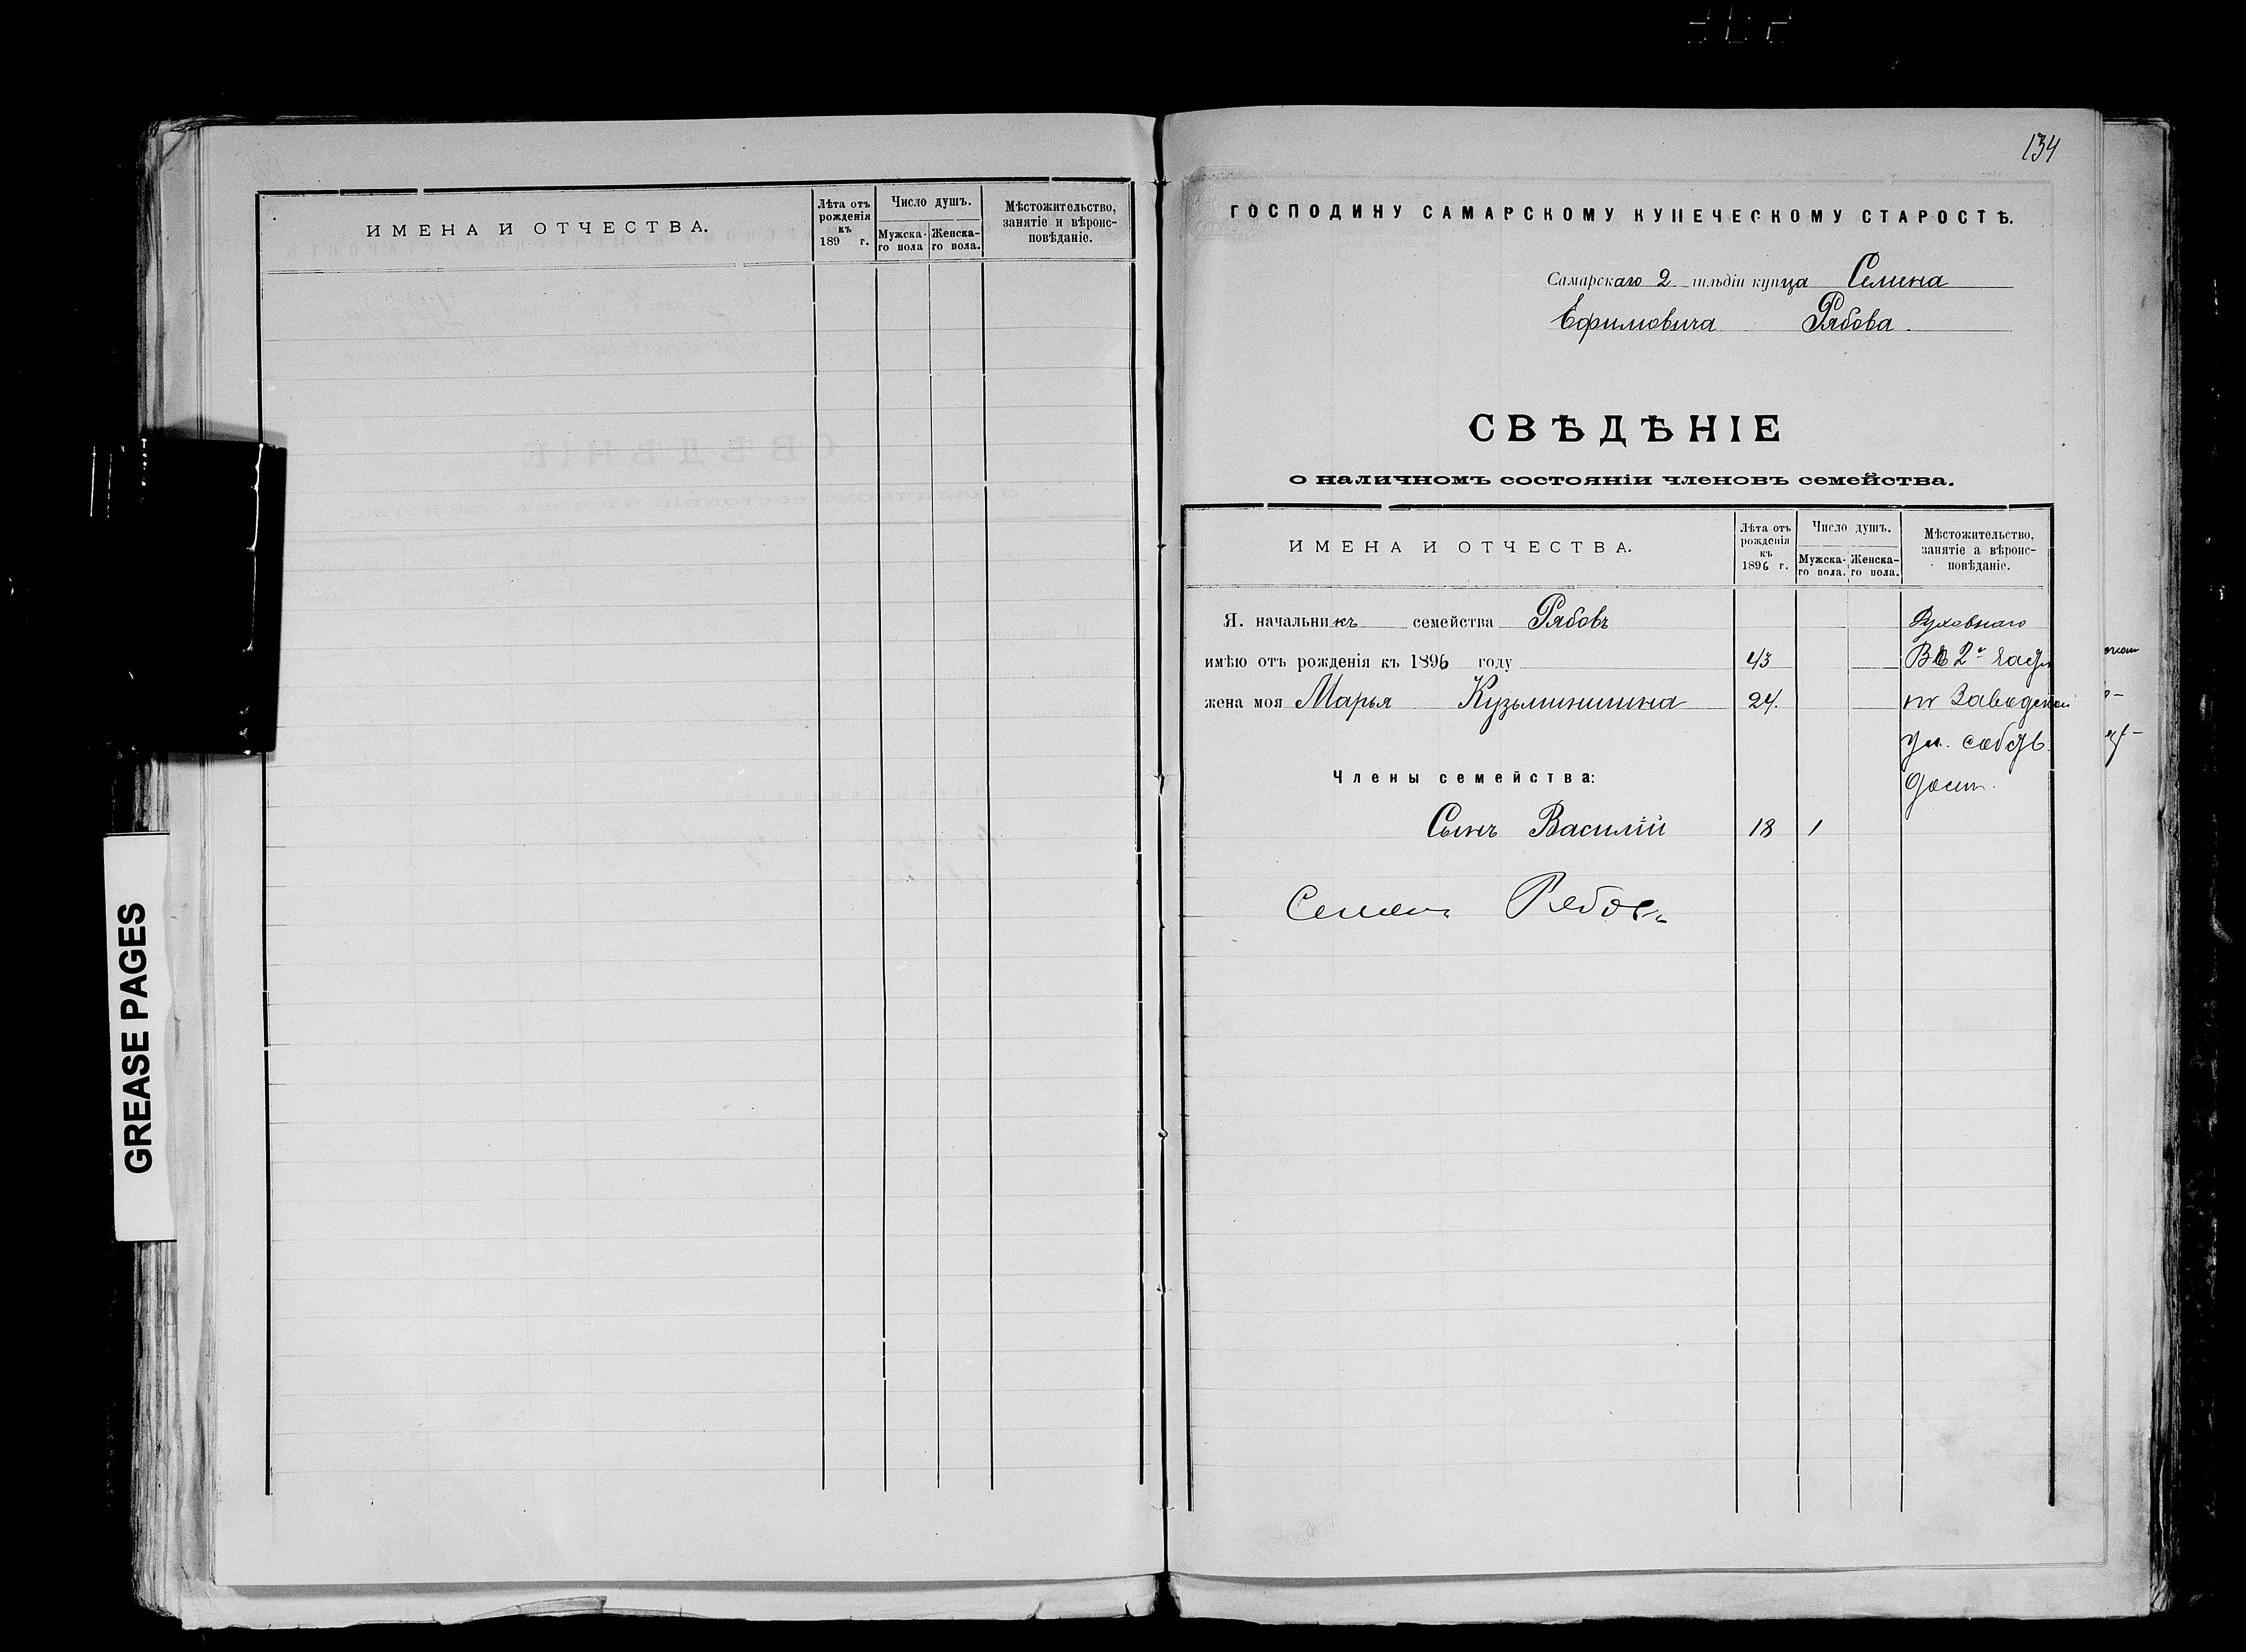 GREASE PAGES
ИМЕНА И ОТЧЕСТВА.
Лѣта отъ рожденія къ 189 г.
Число душъ.
Мужска-го пола
Женска-го пола.
Мѣстожительство, занятіе и вѣроис-повѣданіе.
134
ГОСПОДИНУ САМАРСКОМУ КУПЕЧЕСКОМУ СТАРОСТѢ.
Самарскаго 2 гильдіи купца Семена
Ефимовича Рябова.
СВѢДѢНІЕ
о наличномъ состояніи членовъ семейства.
ИМЕНА И ОТЧЕСТВА.
Лѣта отъ рожденія къ 1896 г.
Число душъ.
Мужска-го пола.
Женска-го пола.
Мѣстожительство, занятіе а вѣроис-повѣданіе.
Я. начальникъ семейства Рябовъ
имѣю отъ рожденія къ 1896 году 43 2й части
жена моя Марья Кузьминишна 24. по Заводской
ул.
Члены семейства:
Сынъ Василій 18 1
Семенъ Рябовъ